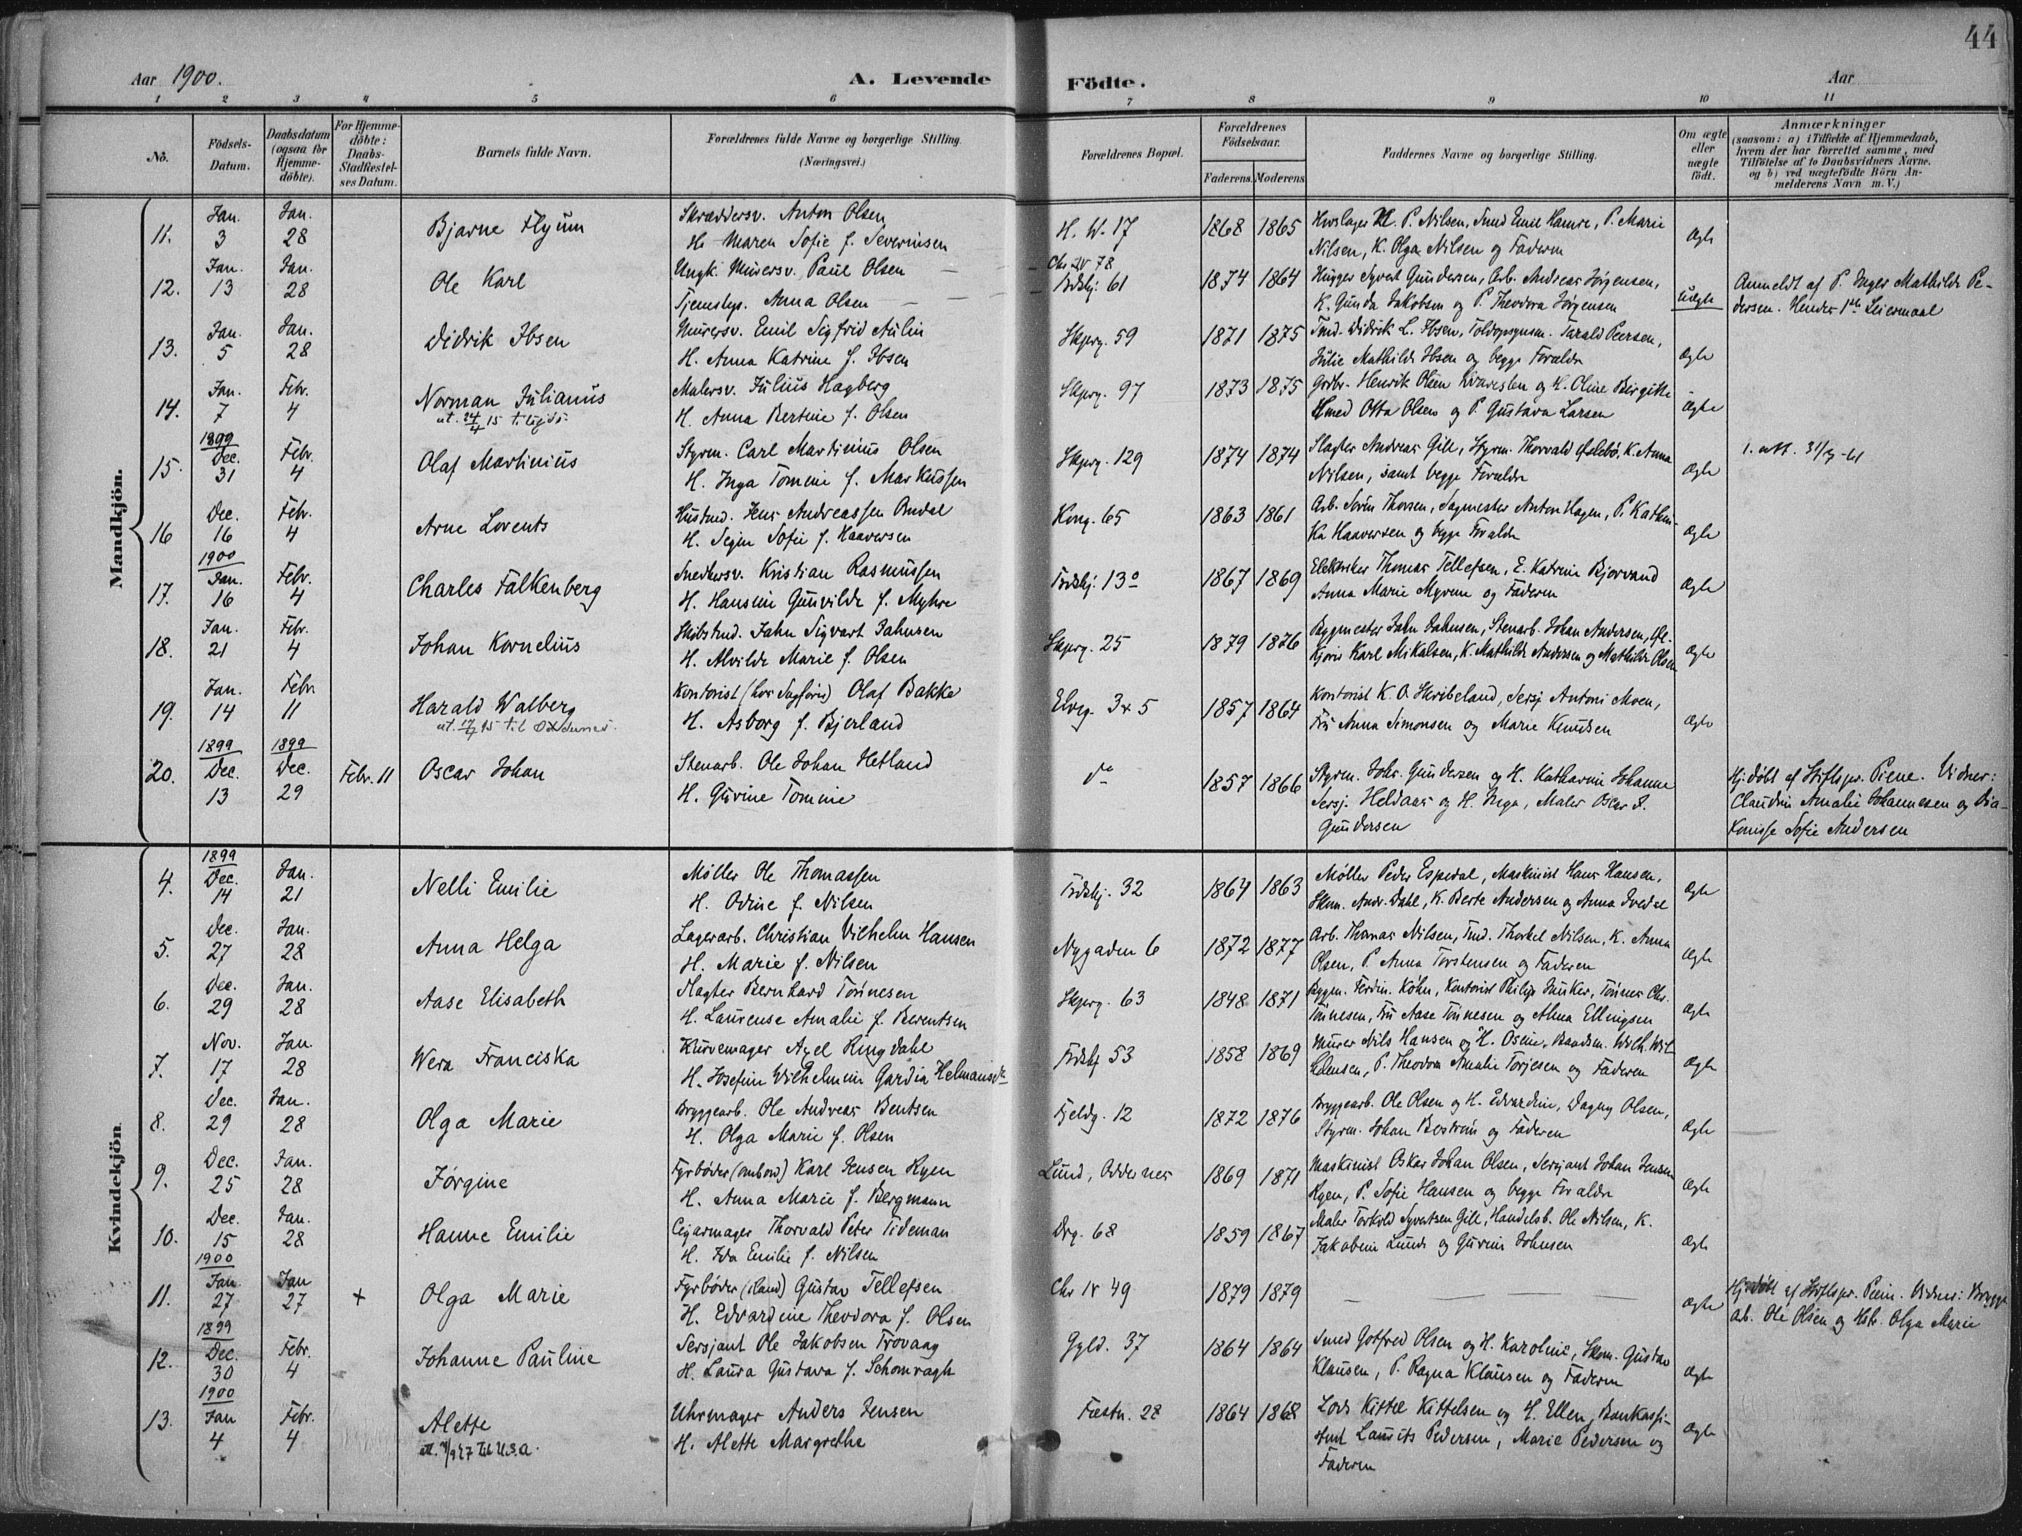 44
Aar 1900.
A. Levende
Födte.
Aar
1 2 3 4 5 6 7 8 9 10 11
No.
Födsels-Datum.
Daabsdatum (ogsaa for Hjemme-döbte).
For Hjemme-döbte: Daabs-Stadfæstel-ses Datum.
Barnets fulde Navn.
Forældrenes fulde Navne og borgerlige Stilling.
(Næringsvei.)
Forældrenes Bopæl.
Forældrenes Födselsaar.
Faderens. Moderens
Faddernes Navne og borgerlige Stilling.
Om ægte eller uægte födt.
Anmærkninger
(saasom: a) i Tilfælde af Hjemmedaab,
hvem der har forrettet samme, med
Tilföielse af to Daabsvidners Navne.
og b) ved uægtefödte Börn An-
melderens Navn m. V.)
Mandkjön.
11. Jan. 3 Jan. 28 Bjarne Flyum
Skræddersv. Anton Olsen
H. Maren Sofie f. Severinsen
H. W. 17 1868 1865
P. Nilsen, Smed Emil Hamre, P. Marie
Nilsen, K. Olga Nilsen og Faderen
Ægte
12. Jan. 13 Jan. 28 Ole Karl
Ungk. Murersv. Paul Olsen
Tjenestep. Anna Olsen
Chr IV 78
Tordskj. 61 1874 1864
Hugger Syvert Gundersen, Arb. Andreas Jörgensen,
K. Gunda Jakobsen og P. Theodora Jörgensen
Uægte
Anmeldt af P. Inger Mathilde Pe-
dersen. Hendes 1ste Leiermaal
13. Jan. 5 Jan. 28 Didrik Ibsen
Murersv. Emil Sigfrid Aulin
H. Anna Katrine f. Ibsen
Skperg. 59 1871 1875
Tmd. Didrik L. Ibsen, Toldopsynsm. Tarald Peersen,
Julie Mathilde Ibsen og begge Forældre
Ægte
14. Jan. 7 Febr. 4 Norman Julianus
Malersv. Julius Hagberg
H. Anna Bertine f. Olsen
Skperg. 97 1873 1875
Grdbr. Henrik Olsen Kvareslen og H. Oline Birgitte
Smed Otto Olsen og P. Gustava Larsen
Ægte
15. 1899 Dec. 31 Febr. 4 Olaf Martinius
Styrm. Carl Martinius Olsen
H. Inga Tomine f. Markussen
Skperg. 129 1874 1874
Slagter Andreas Gill, Styrm. Thorvald Øslebö, K. Anna
Nilsen, samt begge Forældre
Ægte
16 Dec. 16 Febr. 4 Arne Lorents
Hustmd. Jens Andreassen Andal
H. Segin Sofie f. Haaversen
Kong. 65 1863 1861
Arb. Sören Thorsen, Sagmester Anton Hagen, P. Kathin-
ka Haaversen og begge Forældre
Ægte
17. 1900 Jan. 16 Febr. 4 Charles Falkenberg
Snedkersv. Kristian Rasmussen
H. Hansine Gunvilde f. Myhre
Tordskj. 13 1867 1869
Elektriker Thomas Tellefsen, E. Katrine Bjorvand
Anna Marie Myrene og Faderen
Ægte
18. Jan. 21 Febr. 4 Johan Kornelius
Skibstmd. Jahn Sigvart Jahnsen
H. Alvilde Marie f. Olsen
Skperg. 25 1879 1876
Bygmester Jahn Jahnsen, Stenarb. Johan Andersen,
Karl Mikalsen, K. Mathilde Andersen og Mathilde Olsen
Ægte
19. Jan. 14 Febr 11 Harald Walberg
Kontorist (hos Sagförer) Olaf Bakke
H. Asborg f. Bjerland
Elveg. 3 x 5 1857 1864
Kontorist K. O. Skribeland, Sersj. Antoni Moen,
Fru Anna Simonsen og Marie Knudsen
Ægte
20. 1899 Dec. 13 1899 Dec. 29 Febr. 11 Oscar Johan
Stenarb. Ole Johan Hetland
H. Gurine Tomine
do 1857 1866
Styrm. Johs. Gundersen og H. Katharine Johanne
Sersj. Heldaas og H. Inga, Maler Oscar
Gundersen
Hj.döbt af Stiftspr. Piene. Vidner:
Claudine Amalie Johannesen og Dia-
konisse Sofie Andersen
Kvindekjön.
4. 1899 Dec. 14 Jan. 21 Nelli Emilie
Møller Ole Thomassen
H. Odine f. Nilsen
Tordskj. 32 1864 1863
Møller Peder Espedal, Maskinist Hans Hansen,
Skom. Andr. Dahl, K. Berte Andersen og Anna Ivedal
Ægte
5. Dec. 27 Jan. 28 Anna Helga
Lagerarb. Christian Vilhelm Hansen
H. Marie f. Nilsen
Nygaden 6 1872 1877
Arb. Thomas Nilsen, Tmd. Thorkel Nilsen, K. Anna
Olsen, P. Anna Torstensen og Faderen
Ægte
6. Dec. 29 Jan. 28 Aase Elisabeth
Slagter Bernhard Tönnesen
H. Laurense Amalie f. Berentsen
Skperg. 63 1848 1871
Bygm. Ferdin. Köhn, Kontorist Philip Junker, Tönnes Chr.
Tönnesen, Fru Aase Tönnesen og Alma Ellingsen
Ægte
7. Nov. 17 Jan. 28 Wera Franciska
Kurvemager Axel Ringdahl
H. Josefine Vilhelmine Gardia
Tordskj 53 1858 1869
Murer Nils Hansen og H. Osine, Baadsm. Wilh. Wil
helmsen, P. Theodora Amalie Torjesen og Faderen
Ægte
8. Dec. 29 Jan. 28 Olga Marie
Bryggearb. Ole Andreas Bentsen
H. Olga Marie f. Olsen
Fjeldg. 12 1872 1876
Bryggearb. Ole Olsen og H. Edvardine, Dagny Olsen,
Styrm. Johan Beström og Faderen
Ægte
9. Dec. 25 Jan. 28 Jørgine
Fyrbøder (ombord) Karl Jensen Ryen
H. Anna Marie f. Bergmann
Lund, Oddernes 1869 1871
Maskinist Oskar Johan Olsen, Sersjant Johan Jensen
Ryen, P. Sofie Hansen og begge Forældre
Ægte
10. Dec. 15 Jan. 28 Hanne Emilie
Cigarmager Thorvald Peter Tideman
H. Ida Emilie f. Nilsen
Drg. 68 1859 1867
Maler Torkild Syvertsen Gill, Handelsb. Ole Nilsen, K.
Jakobine Lunde og Gurine Johnsen
Ægte
11. 1900 Jan. 27 Jan 27 + Olga Marie
Fyrbøder (iland) Gustav Tellefsen
H. Edvardine Theodora f. Olsen
Chr IV 49 1879 1879
Ægte
Hjmdöbt af Stiftspr. Piene. Vidner: Brygge
arb. Ole Olsen og Hstr. Olga Marie
12. 1899 Dec. 30 Febr. 4 Johanne Pauline
Sersjant Ole Jakobsen Trovaag
H. Laura Gustava f. Schomvagh
Gyld. 37 1864 1864
Smed Gotfred Olsen og H. Karoline, Skom. Gustav
Klausen, P. Ragna Klausen og Faderen
Ægte
13. 1900 Jan 4 Febr. 4 Alette
Uhrmager Anders Jensen
H. Alette Margrethe
Fæstn. 28 1864 1868
Lods Kittel Kittelsen og H. Ellen, Bankassi-
stent Laurits Pedersen, Marie Pedersen og
Faderen
Ægte